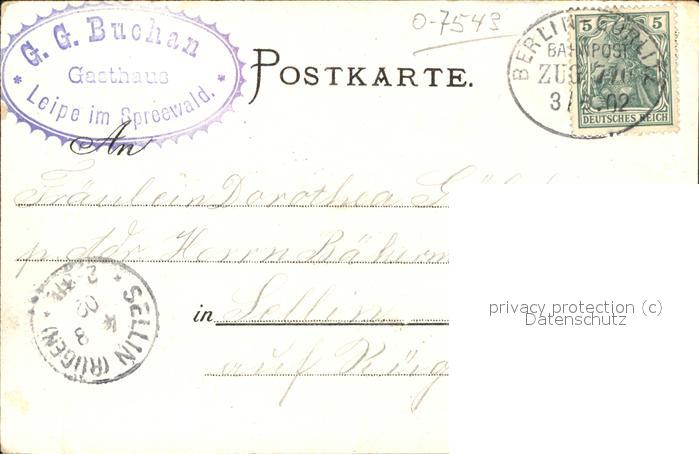 G. G. Buchan
Gasthaus
Leipe im Spreewald.
O-7543
POSTKARTE.
BERLIN GÖRLI
BAHNPOST
ZUG
02
5 5
DEUTSCHES REICH
An
Fräulein Dorothea
p. Adr. Herrn
in Sellin
auf Rüg
SELLIN (RÜGEN)
4 8
02
privacy protection (c)
Datenschutz